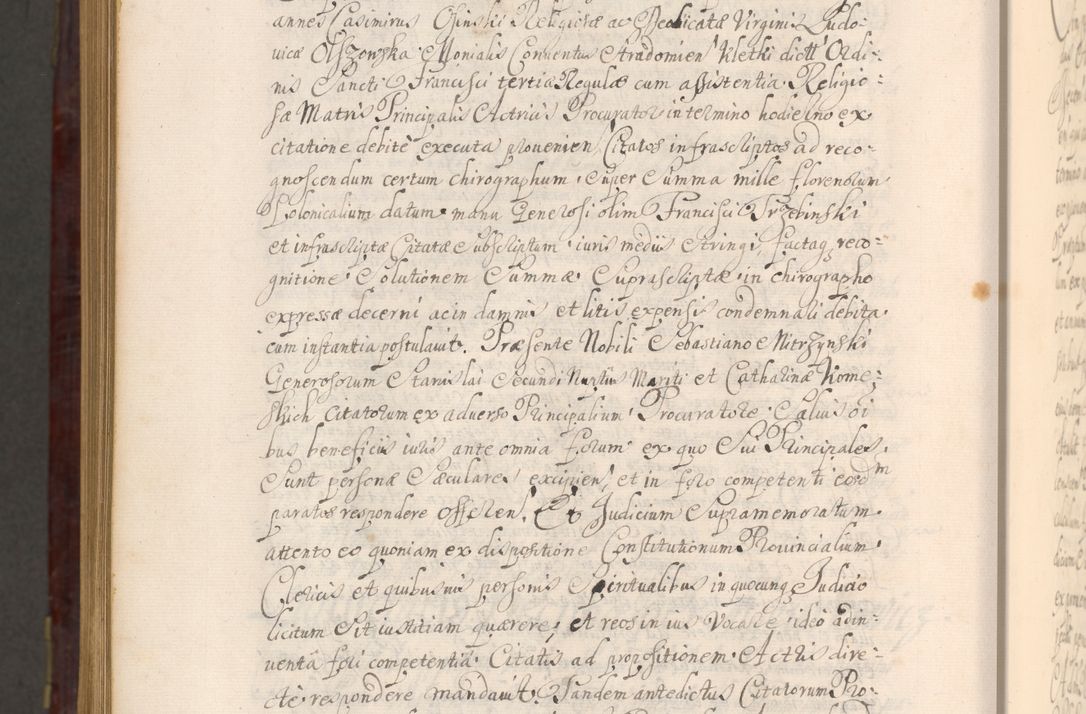 annes Casimirus Osinski Religiosæ ac Deo dicatæ Virginis Ludo-
vicæ Olszowska Monialis Conventus Stradomien Kletki dictt Ordi-
nis Sancti Francisci tertiæ Regulæ cum assistentia Religio-
sæ Matris Principalis Actricis Procurator in termino hodierno ex
citatione debitè executa provenien. Citatos infrascriptos ad reco-
gnoscendum certum chirographum super Summa mille florenorum
Polonicalium datum manu Generosi olim Francisci Trzebinski
et infrascriptæ Citatæ subscriptum iuris mediis stringi, factaq reco-
gnitione Solutionem Summæ Suprascriptæ in chirographo
expressæ decerni ac in damnis et litis expensis condemnali debita
cum instantia postulavit. Præsente Nobili Sebastiano Mitrzynski
Generosorum Stanislai Secundi Nuptus Mariti et Catharinæ Kome-
skich Citatorum ex adverso Principalium Procuratore Salvis oi
bus beneficiis iuris ante omnia forum ex quo Sui Principales
Sunt personæ Sæculares excipien, et in foro competenti eosdm
paratos respondere offeren. Et Judicium Supramemoratum
attento eo quoniam ex dispositione Constitutionum Provincialium
Clericis et quibusvis personis Spiritualibus in quocunq Judicio
licitum Sit iustitiam quærere, et reos in ius vocare ideo adin-
ventâ fori competentiâ Citatis ad propositionem Actricis dire-
ctè respondere mandavit. Tandem antedictus Citatorum Pro-